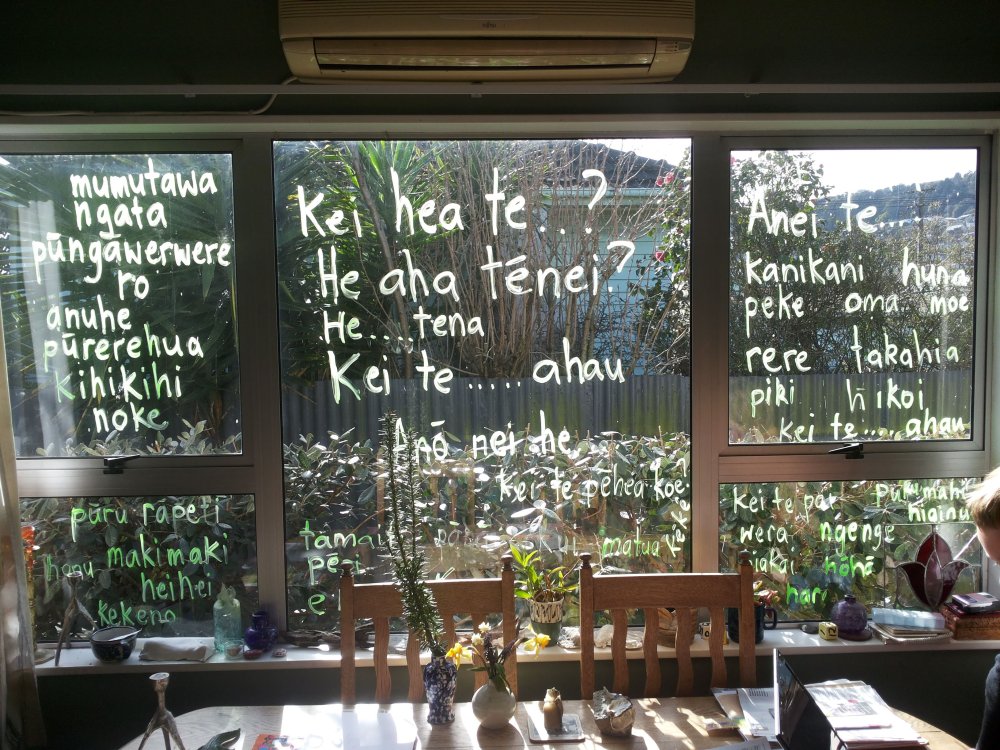 mumutawa
ngata
pūngāwerwere
ro
anuhe
pūrerehua
kihikihi
noke
pūru rāpeti
honu makimaki
heihei
kekeno
Kei hea te...?
He aha tēnei?
He.... tena
Kei te ..... ahau
Anō nei he...
Kei te pēhea koe?
matua
Anei te...
kanikani huna
peke oma moe
rere takahia
piki hīkoi
kei te.... ahau
Kei te
wera ngenge
hiainu
hōhā
hari
FUJITSU